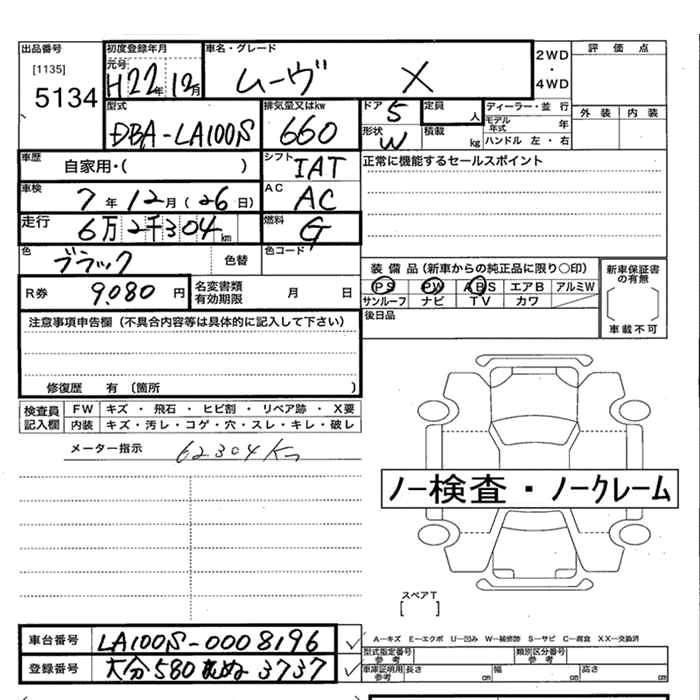 出品番号
[1135]
5134
初度登録年月
元号
H22年 12月
車名・グレード
ムーヴ X
2WD
・
4WD
評価点
外装 内装
型式
DBA-LA100S
排気量又はkw
660
ドア
5
形状
W
定員
人
積載
kg
ディーラー・並行
モデル年式 年
ハンドル 左・右
車歴
自家用・( )
シフト
IAT
正常に機能するセールスポイント
車検
7年 12月 (26日)
AC
AC
走行
6万2千304km
燃料
G
色
ブラック
色替
色コード
装備品(新車からの純正品に限り○印)
PS PW ABS エアB アルミW
サンルーフ ナビ TV カワ
新車保証書
の有無
車載不可
R券
9,080円
名変書類
有効期限
月 日
後日品
注意事項申告欄(不具合内容等は具体的に記入して下さい)
修復歴 有 (箇所 )
検査員
記入欄
FW キズ・飛石・ヒビ割・リペア跡・X要
内装 キズ・汚レ・コゲ・穴・スレ・キレ・破レ
メーター指示
62304Km
ノー検査・ノークレーム
スペアT
[ ]
車台番号
LA100S-0008196
登録番号
大分580 3737
A－キズ E－エクボ U－凹み W－補修跡 S－サビ C－腐食 XX－交換済
型式指定番号
参考
類別区分番号
参考
車庫証明用
参考
長さ cm 幅 cm 高さ cm